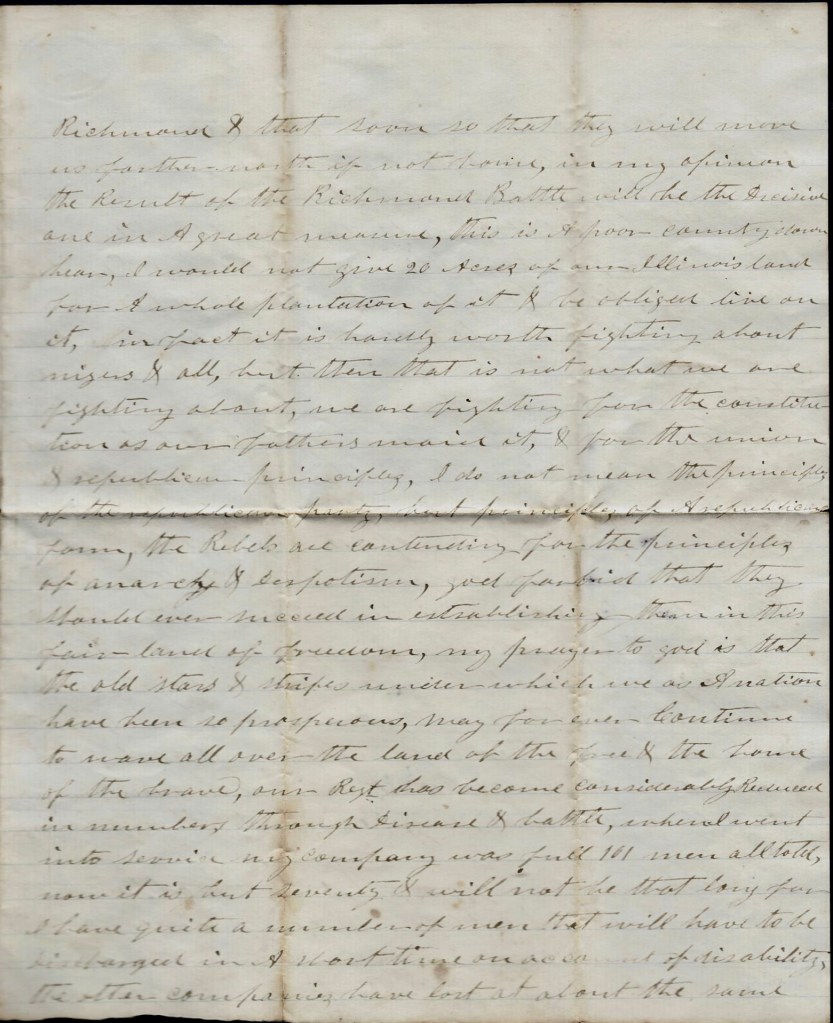 Richmond & that soon so that they will move
us farther north if not home, in my opinion
the Result of the Richmond Battle will be the Decisive
one in A great measure, this is A poor country down
hear, I would not give 20 Acres of our Illinois land
for A whole plantation of it & be obliged live on
it, in fact it is hardly worth fighting about
nigers & all, but then that is not what we are
fighting about, we are fighting for the constitu-
tion as our fathers maid it, & for the union
& republican principles, I do not mean the principles
of the republican party, but principles of A republican
form, the Rebels are contending for the principles
of anarchy & Despotism, god forbid that they
should ever succeed in establishing them in this
fair land of freedom, my prayer to god is that
the old stars & stripes under which we as A nation
have been so prosperous, may for ever Continue
to wave all over the land of the free & the home
of the brave, our Regt has become considerably Reduced
in numbers through Disease & battle, when I went
into service my company was full 101 men all told,
now it is but seventy & will not be that long for
I have quite a number of men that will have to be
discharged in A short time on account of disability,
the other companies have lost at about the same